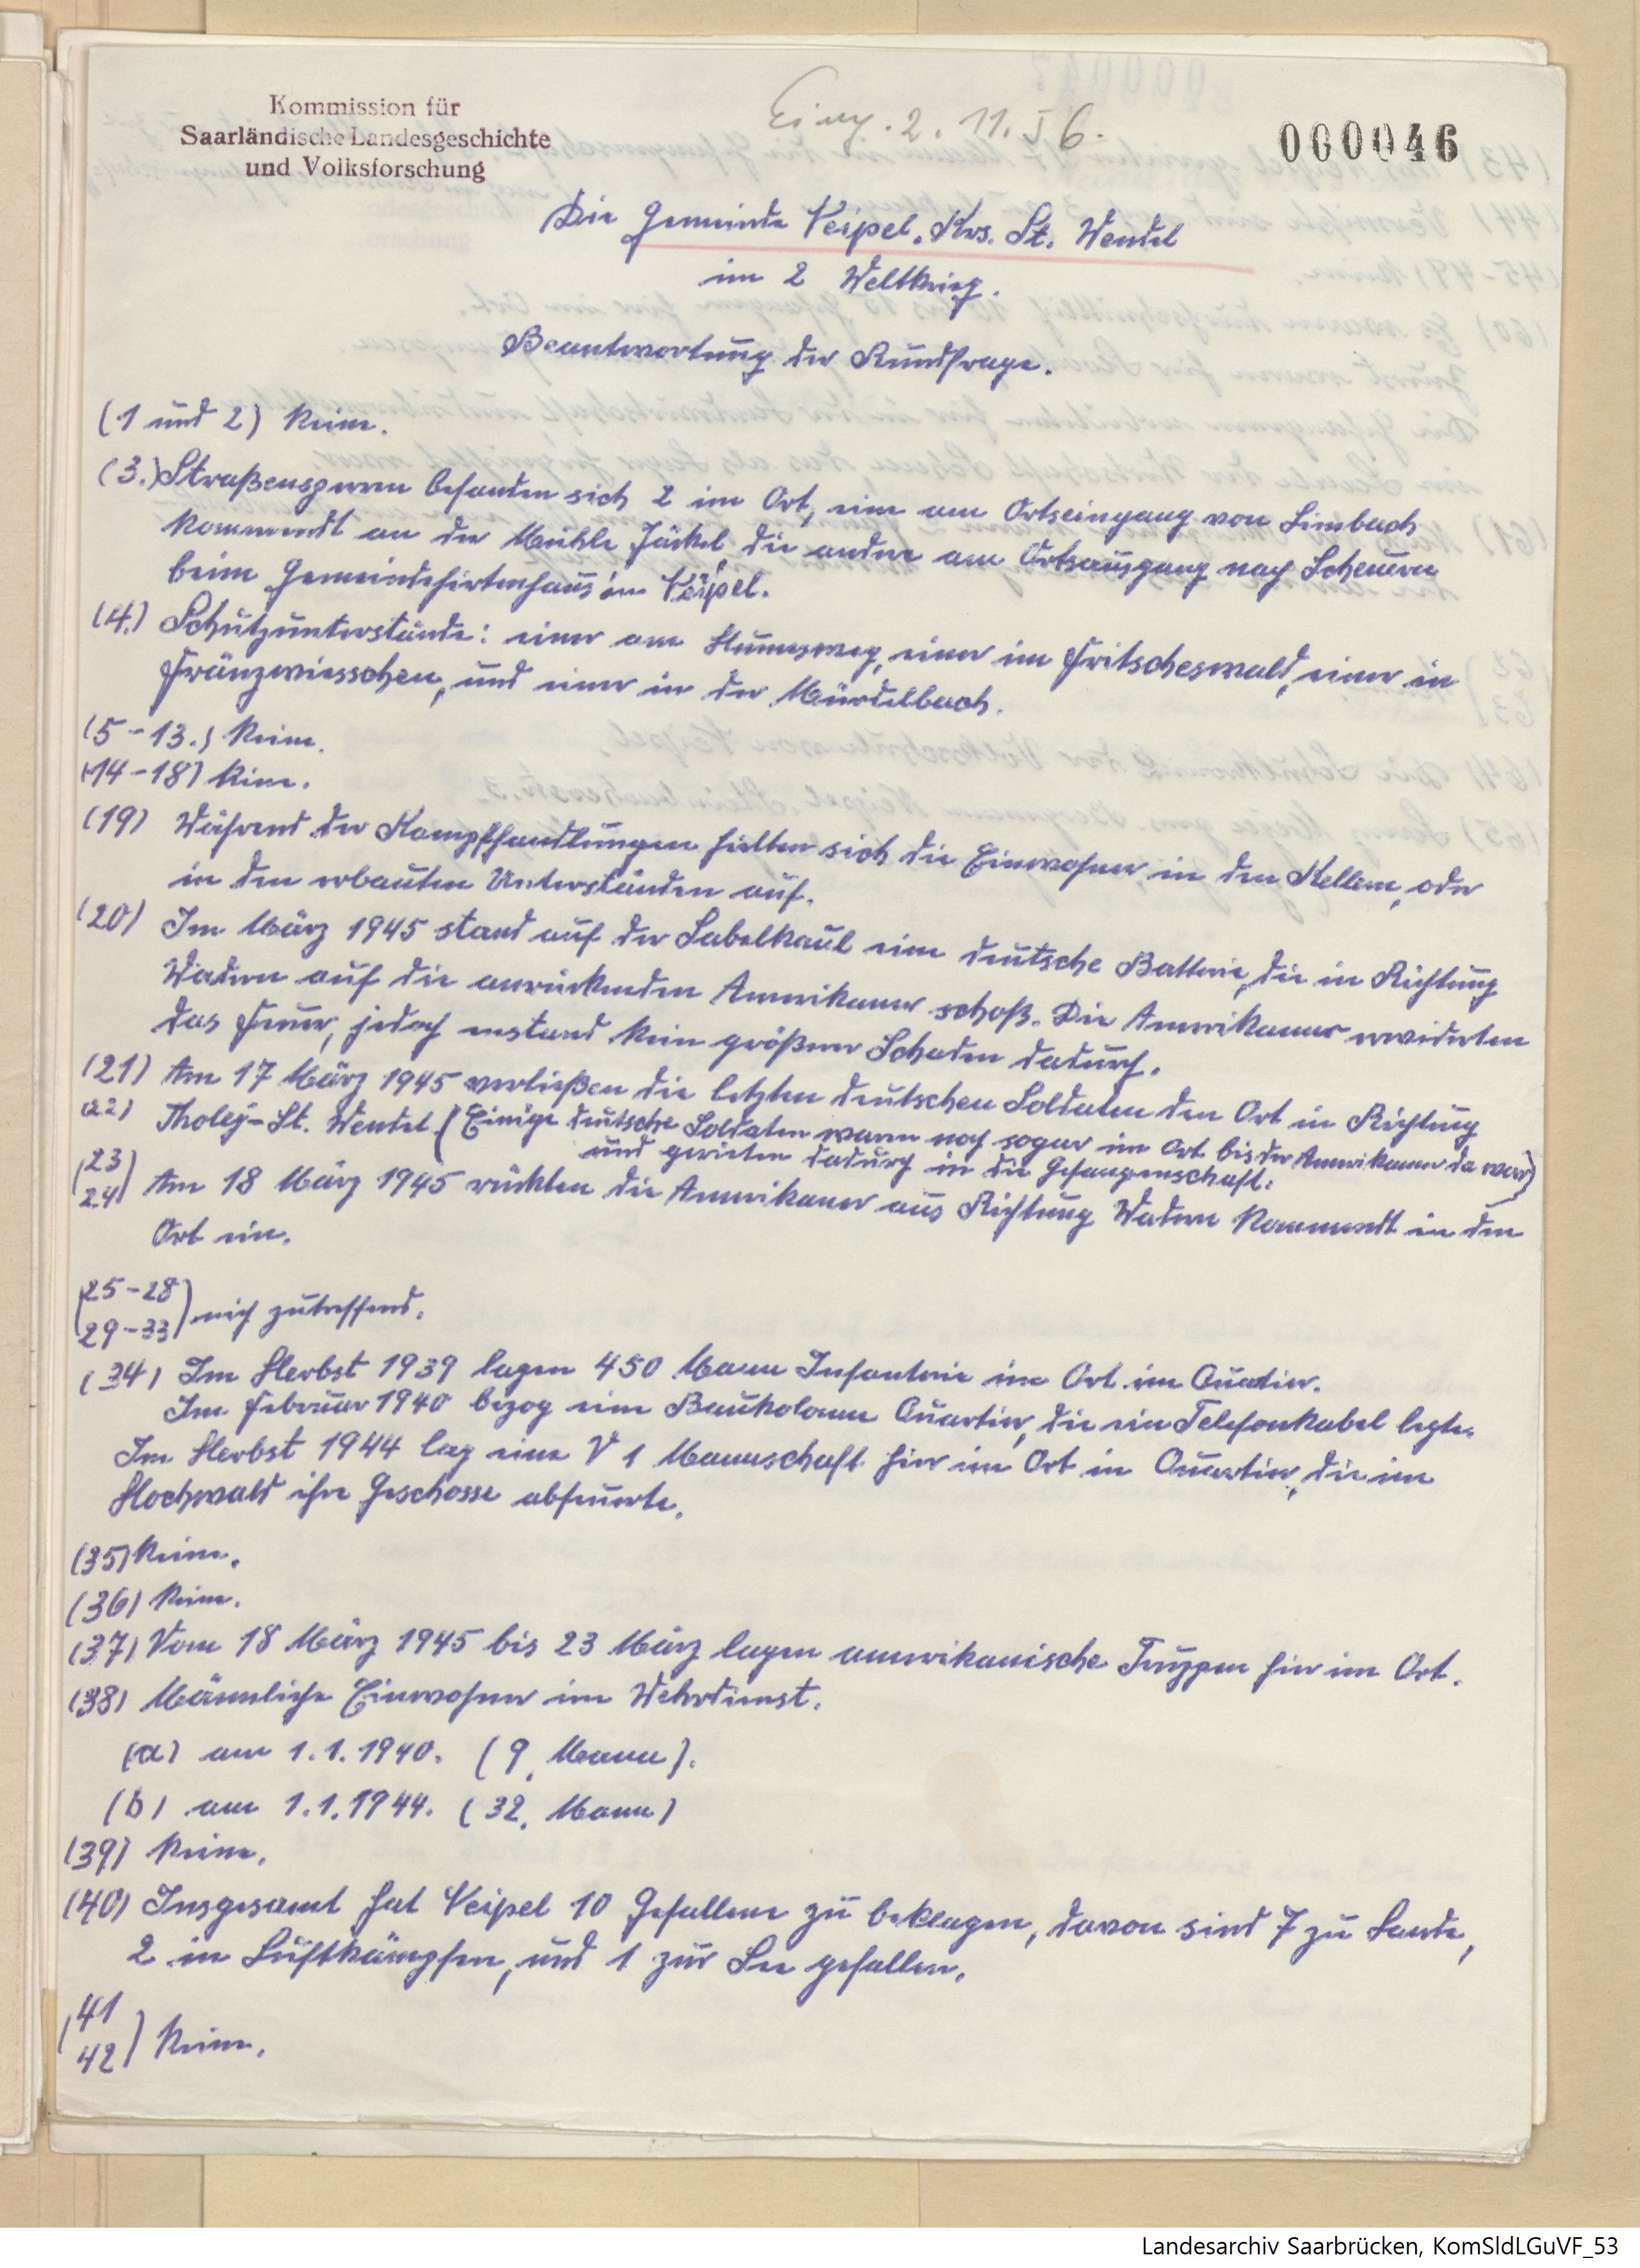 Kommission für
Saarländische Landesgeschichte
und Volksforschung
Eing. 2. 11. 56.
000046
Die Gemeinde Neipel, Krs. St. Wendel
im 2 Weltkrieg.
Beantwortung der Rundfrage.
(1 und 2) Keine.
(3.) Straßensperren befanden sich 2 im Ort, eine am Ortseingang von Limbach
kommendt an der Mühle Jäckel, die andere am Ortsausgang nach Scheuern
beim Gemeindehirtenhaus in Neipel.
(4.) Schützunterstände: einer am Humesweg, einer im Fritscheswald, einer in
Fränzwiesschen, und einer in der Mürdelbach.
(5-13.) Keine.
(14-18) Keine.
(19) Während der Kampfhandlungen hielten sich die Einwohner in den Kellern, oder
in den erbauten Unterständen auf.
(20) Im März 1945 stand auf der Labelkaul eine deutsche Batterie, die in Richtung
Wadern auf die anrückenden Amerikaner schoß. Die Amerikaner erwiderten
das Feuer, jedoch enstand kein größerer Schaden dadurch.
(21) Am 17 März 1945 verließen die letzten deutschen Soldaten den Ort in Richtung
22) Tholey-St. Wendel. (Einige deutsche Soldaten waren noch sogar im Ort bis der Amerikaner da war)
und gerieten dadurch in die Gefangenschaft.
(23
24) Am 18 März 1945 rückten die Amerikaner aus Richtung Wadern kommendt in den
Ort ein.
(25-28
29-33) nich zutreffend.
(34) Im Herbst 1939 lagen 450 Mann Infanterie im Ort im Quatier.
Im Februar 1940 bezog eine Baukolonne Quartier, die ein Telefonkabel legte.
Im Herbst 1944 lag eine V 1 Mannschaft hier im Ort in Quartier, die im
Hochwald ihre Geschosse abfeuerte.
(35) Keine.
(36) Keine.
(37) Vom 18 März 1945 bis 23 März lagen amerikanische Truppen hier im Ort.
(38) Männliche Einwohner im Wehrdienst.
(a) am 1.1.1940. (9, Mann).
(b) am 1.1.1944. (32, Mann)
(39) Keine.
(40) Insgesamt hat Neipel 10 Gefallene zu beklagen, davon sind 7 zu Lande,
2 in Luftkämpfen, und 1 zur See gefallen.
(41
42) Keine.
Landesarchiv Saarbrücken, KomSldLGuVF_53